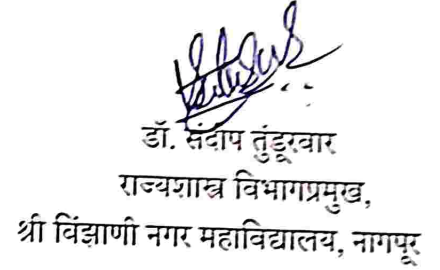 डॉ. संदीप तुंडूरवार
राज्यशास्त्र विभागप्रमुख,
श्री विंझाणी नगर महाविद्यालय, नागपूर